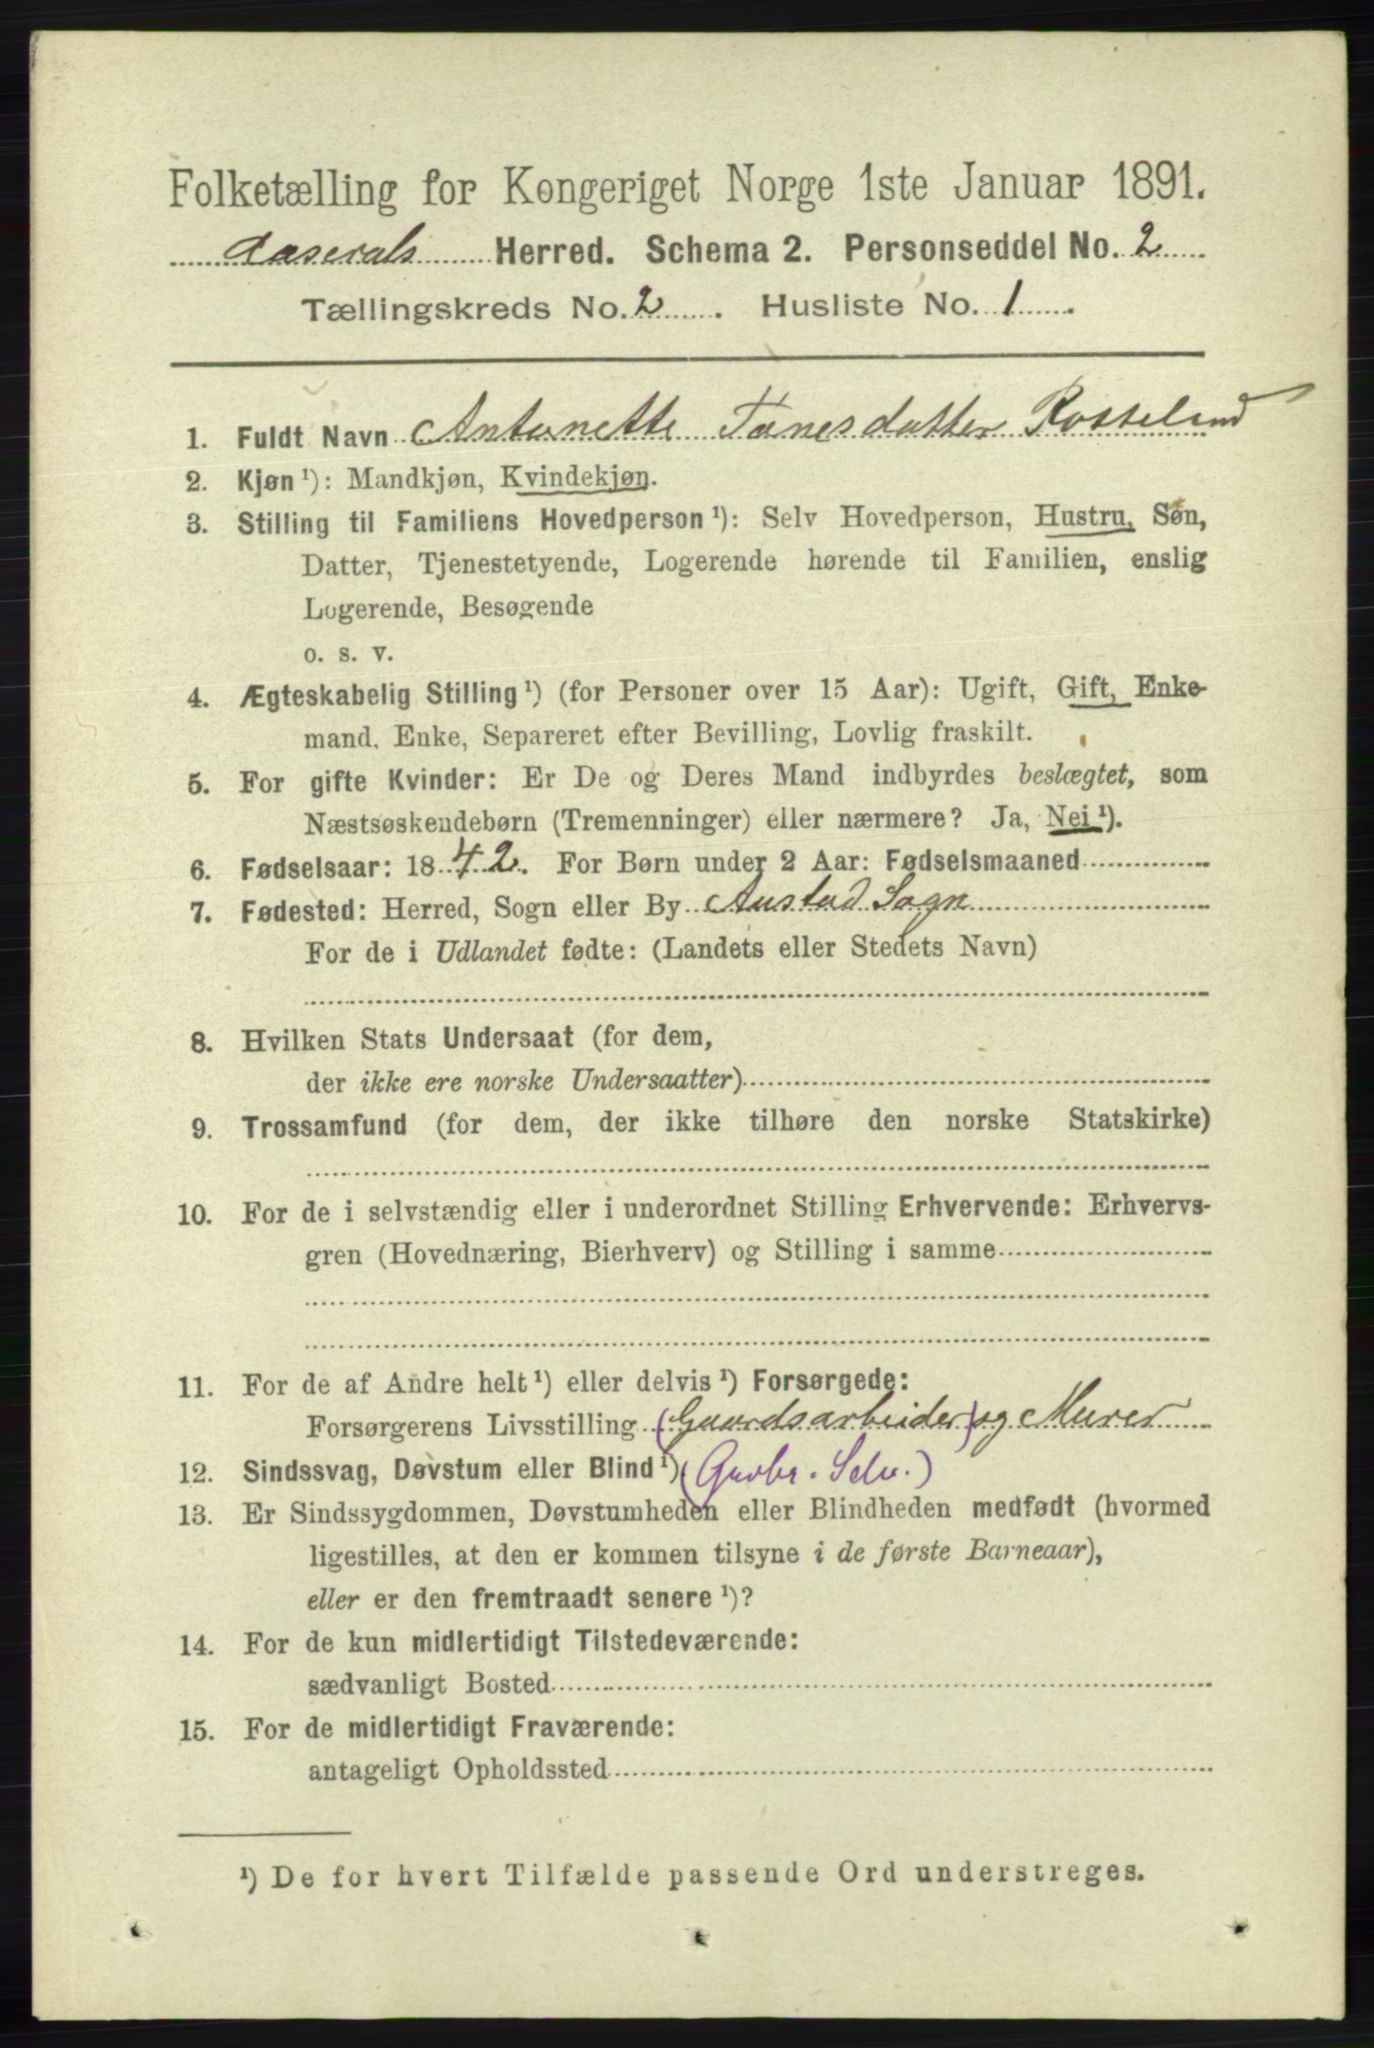 Folketælling for Kongeriget Norge 1ste Januar 1891.
Aaserals Herred. Schema 2. Personseddel No. 2
Tællingskreds No. 2. Husliste No. 1.
1. Fuldt Navn Antonette Tønesdatter Rosseland
2. Kjøn ¹): Mandkjøn, Kvindekjøn.
3. Stilling til Familiens Hovedperson ¹): Selv Hovedperson, Hustru, Søn,
Datter, Tjenestetyende, Logerende hørende til Familien, enslig
Logerende, Besøgende
o. s. v.
4. Ægteskabelig Stilling ¹) (for Personer over 15 Aar): Ugift, Gift, Enke-
mand, Enke, Separeret efter Bevilling, Lovlig fraskilt.
5. For gifte Kvinder: Er De og Deres Mand indbyrdes beslægtet, som
Næstsøskendebørn (Tremenninger) eller nærmere? Ja, Nei ¹).
6. Fødselsaar: 1842. For Børn under 2 Aar: Fødselsmaaned
7. Fødested: Herred, Sogn eller By Austad Sogn
For de i Udlandet fødte: (Landets eller Stedets Navn)
8. Hvilken Stats Undersaat (for dem,
der ikke ere norske Undersaatter)
9. Trossamfund (for dem, der ikke tilhøre den norske Statskirke)
10. For de i selvstændig eller i underordnet Stilling Erhvervende: Erhvervs-
gren (Hovednæring, Bierhverv) og Stilling i samme
11. For de af Andre helt ¹) eller delvis ¹) Forsørgede:
Forsørgerens Livsstilling (Gaardsarbeider) og Murer
12. Sindssvag, Døvstum eller Blind ¹) (Gaobr. Selv.)
13. Er Sindssygdommen, Døvstumheden eller Blindheden medfødt (hvormed
ligestilles, at den er kommen tilsyne i de første Barneaar),
eller er den fremtraadt senere ¹)?
14. For de kun midlertidigt Tilstedeværende:
sædvanligt Bosted
15. For de midlertidigt Fraværende:
antageligt Opholdssted
¹) De for hvert Tilfælde passende Ord understreges.